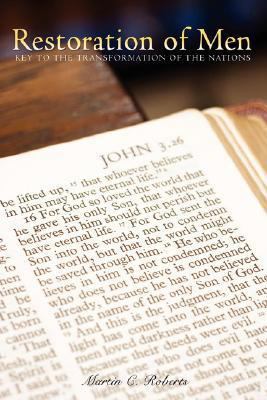 Restoration of Men
KEY TO THE TRANSFORMATION OF THE NATIONS
JOHN 3.26
be lifted up, 15 that whoever believes
in him may have eternal life."
16 For God so loved the world that
he gave his only Son, that whoever
believes in him should not perish but
have eternal life. 17 For God sent the
Son into the world, not to condemn
the world, but that the world might
be saved through him. 18 He who be-
lieves in him is not condemned; he
who does not believe is condemned
already, because he has not believed
in the name of the only Son of God.
19 And this is the judgment, that the
light has come into the world, and
darkness rather than light,
deeds were evil.
Martin C. Roberts